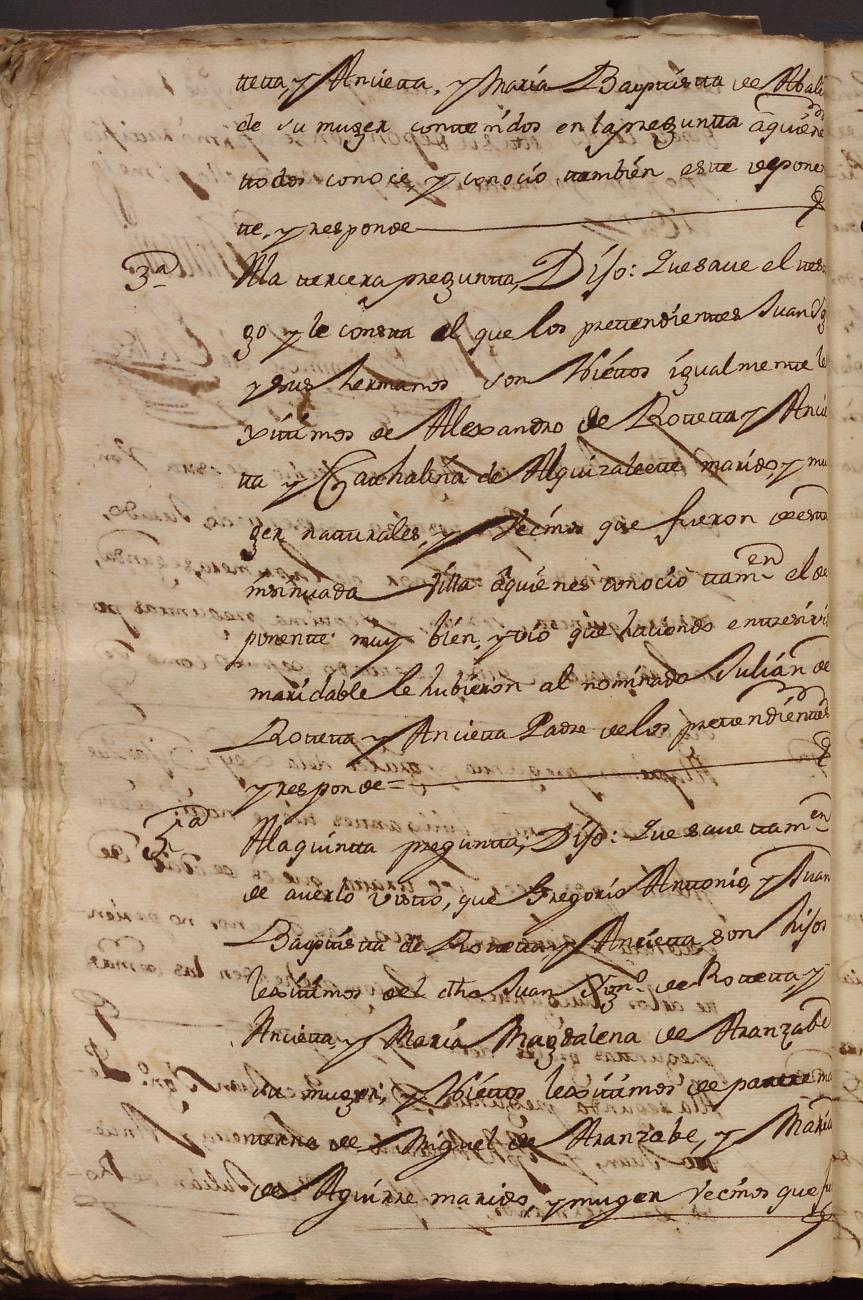 tteta, y Ancieta, y Maria Baptista de Abali
de su muger contenidos en la preguntta a quiene
ttodos conoce, y conocio ttambien este depone
te, y responde
3ª Ala tercera preguntta, Dijo: Que saue el tes
go y le consta el que los prettendientes Juan Ygn
y sus hermanos son Niettos igualmente le
xitimos de Alexandro de Rotetta y Ancie
ta y Cathalina de Alquizalette marido, y mu
ger naturales, y Vecinos que fueron de esta
insinuada Villa a quienes conocio ttamen el de
ponente muy bien, y vio que haciendo entre si vi
maridable le hubieron al nominado Julian de
Rotetta y Ancieta Padre de los prettendienttes
y responde
5ª Ala quintta preguntta, Dijo: Que saue ttamen
de auerlo visto, que Gregorio Anttonio, y Juan
Baptista de Rotetta y Ancieta, son hijos
lexitimos del dho Juan Ygn.º de Rotetta, y
Ancieta, y Maria Magdalena de Aranzabe
su muger, y Niettos lexitimos de parte ma
tterna de Miguel de Aranzabe, y Maria
de Aguirre marido, y muger Vecinos que fu